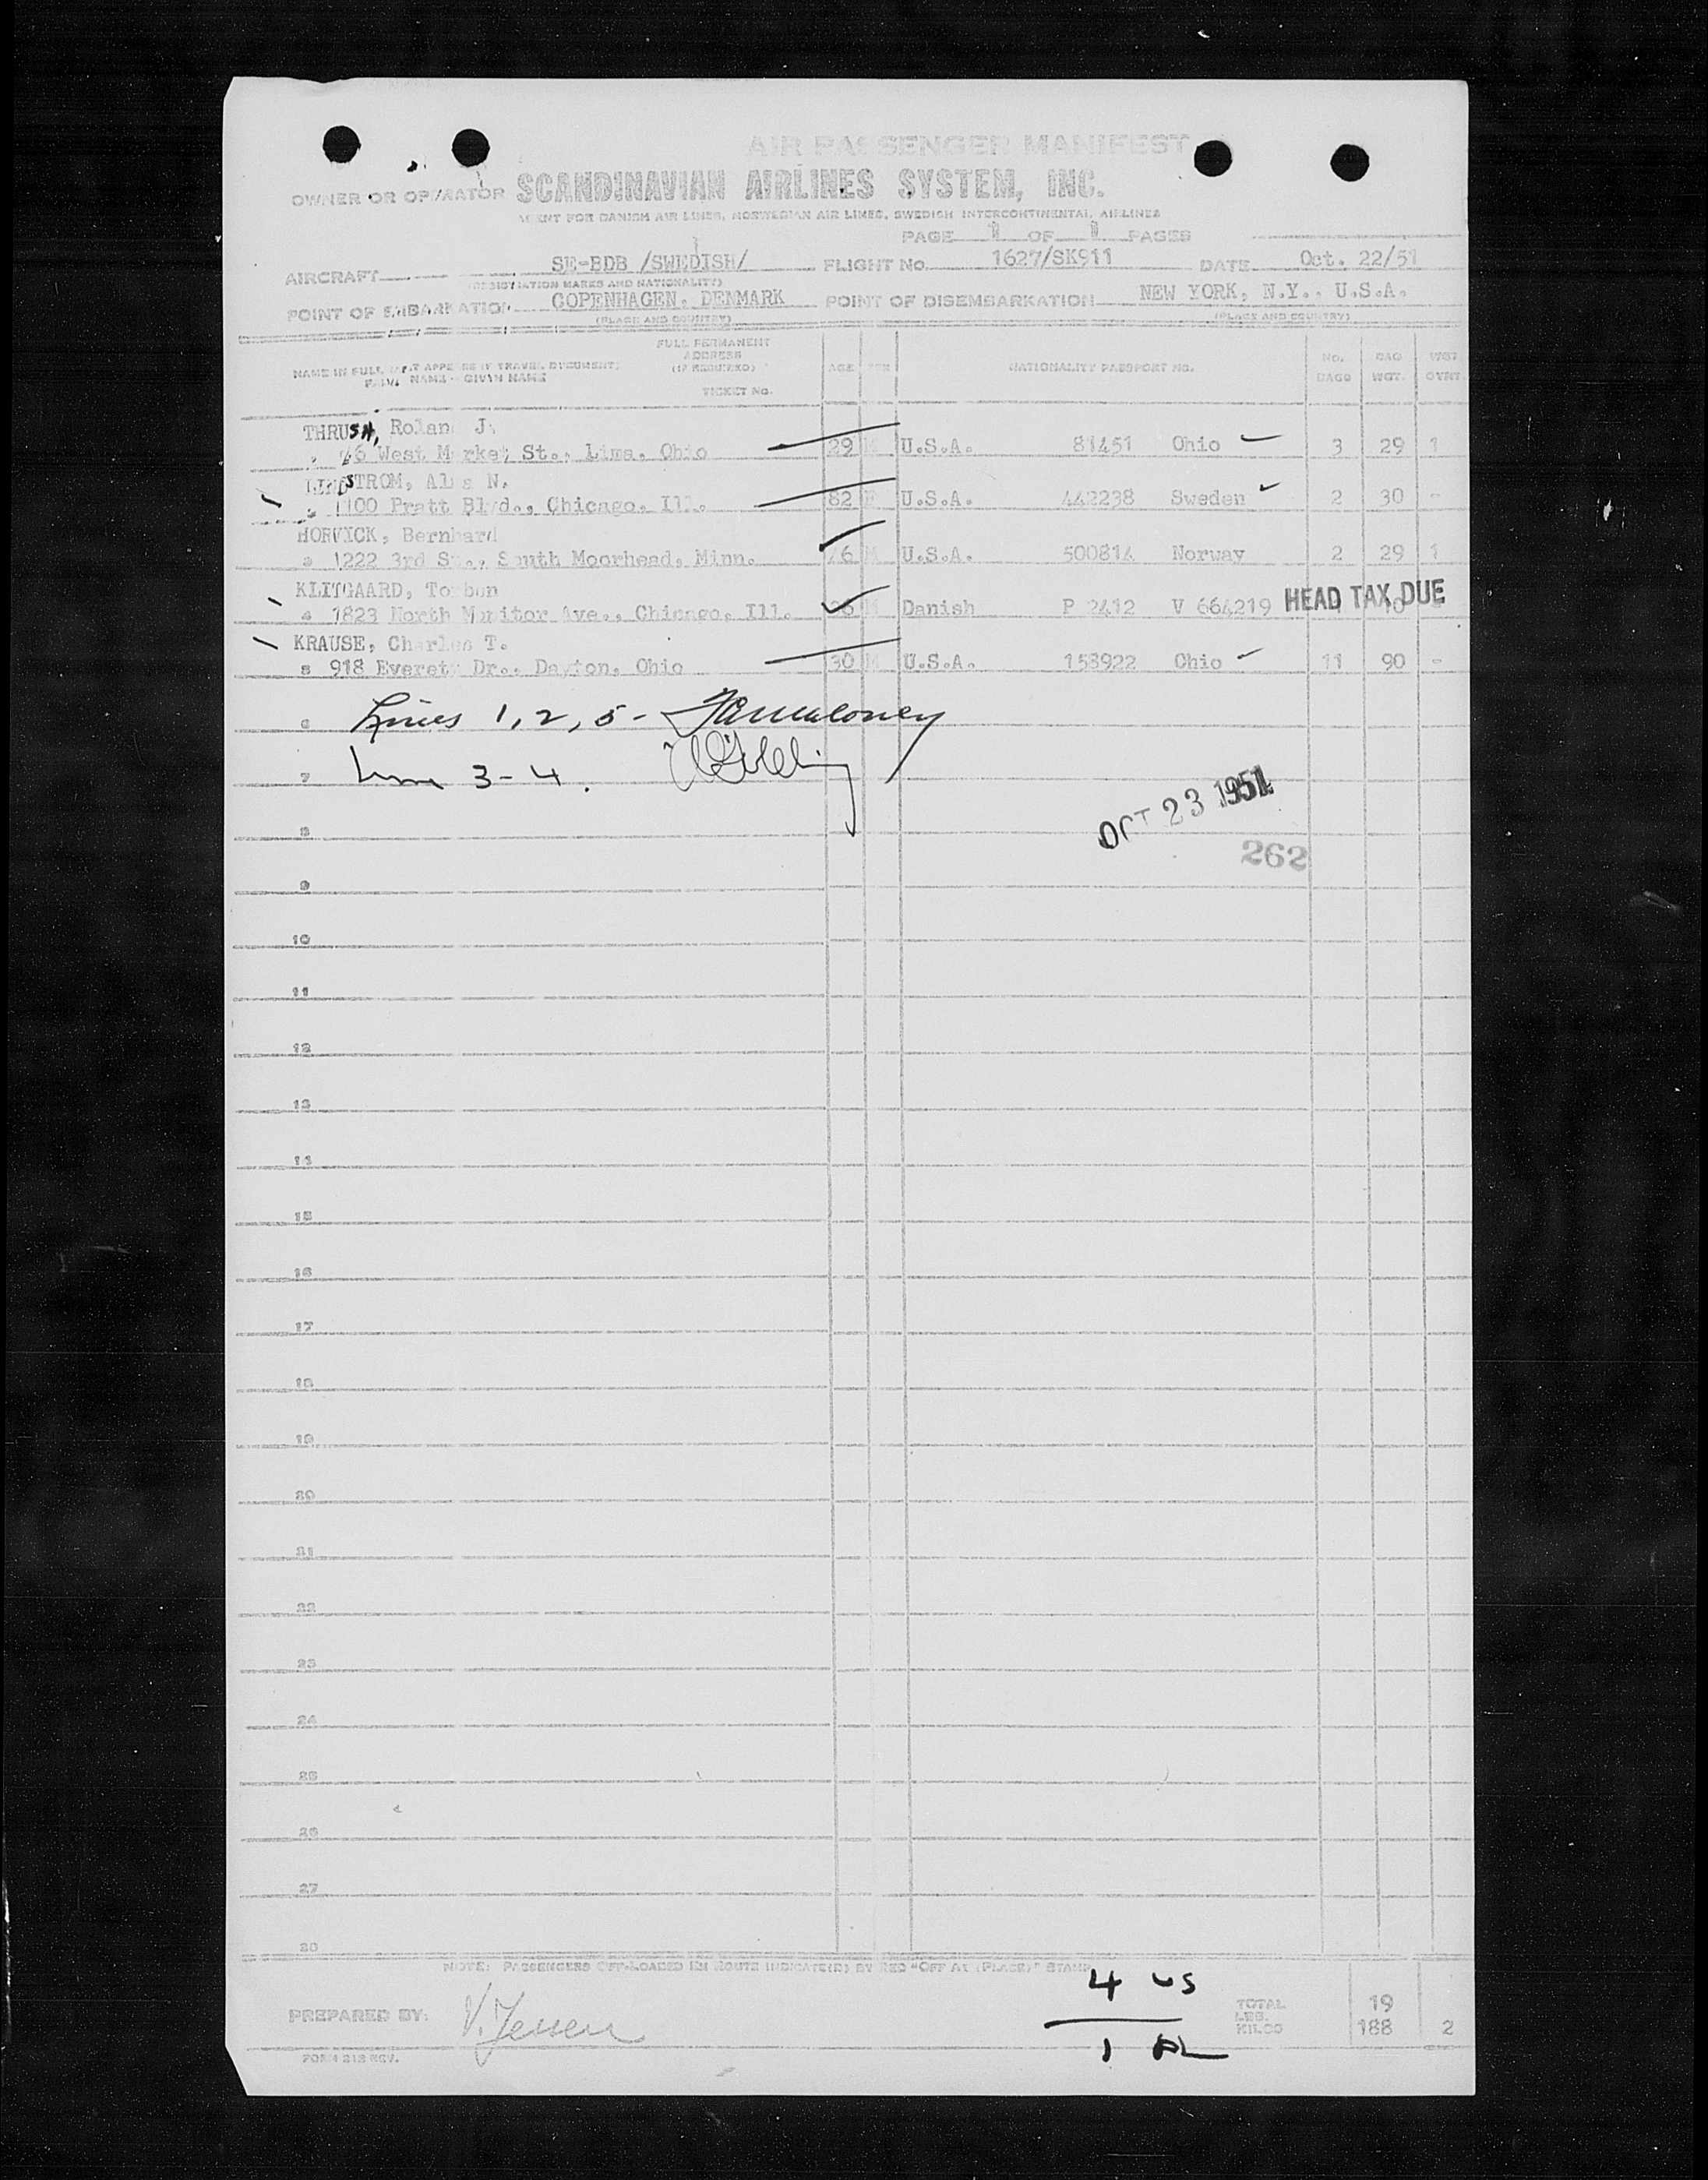 AIR PASSENGER MANIFEST
OWNER OR OPERATOR SCANDINAVIAN AIRLINES SYSTEM, INC.
AGENT FOR DANISH AIR LINES, NORWEGIAN AIR LINES, SWEDISH INTERCONTINENTAL AIRLINES
PAGE 1 OF 1 PAGES
AIRCRAFT SE-BDB /SWEDISH/ FLIGHT No. 1627/SK911 DATE Oct. 22/51
(REGISTRATION MARKS AND NATIONALITY)
POINT OF EMBARKATION COPENHAGEN, DENMARK POINT OF DISEMBARKATION NEW YORK, N.Y., U.S.A.
(PLACE AND COUNTRY) (PLACE AND COUNTRY)
NAME IN FULL (AS IT APPEARS IN TRAVEL DOCUMENT) FAMILY NAME - GIVEN NAME FULL PERMANENT ADDRESS (IF REQUIRED) TICKET No. AGE SEX NATIONALITY PASSPORT No. No. BAGS BAG WGT. WGT OVWT
THRUSH, Roland J.
West Market St., Lima, Ohio 29 M U.S.A. 81451 Ohio 3 29 1
STROM, N.
1100 Pratt Blvd., Chicago, Ill. 82 F U.S.A. 442238 Sweden 2 30 -
HORVICK, Bernhard
3 1222 3rd St., South Moorhead, Minn. M U.S.A. 500814 Norway 2 29 1
KLITGAARD, Torben
4 1823 North Monitor Ave., Chicago, Ill. M Danish P 2412 V 664219 HEAD TAX DUE
KRAUSE, Charles T.
5 918 Everett Dr., Dayton, Ohio 30 M U.S.A. 158922 Ohio 11 90 -
6 Lines 1, 2, 5 -
7 Line 3-4.
OCT 23 1951
8
262
9
10
11
12
13
14
15
16
17
18
19
20
21
22
23
24
25
26
27
28
NOTE: PASSENGERS OFF-LOADED EN ROUTE INDICATE(D) BY RED "OFF AT (PLACE)" STAMP
4 US
PREPARED BY: V. Jensen TOTAL 19
LBS.
KILOS 188 2
1 AL
FORM 213 REV.